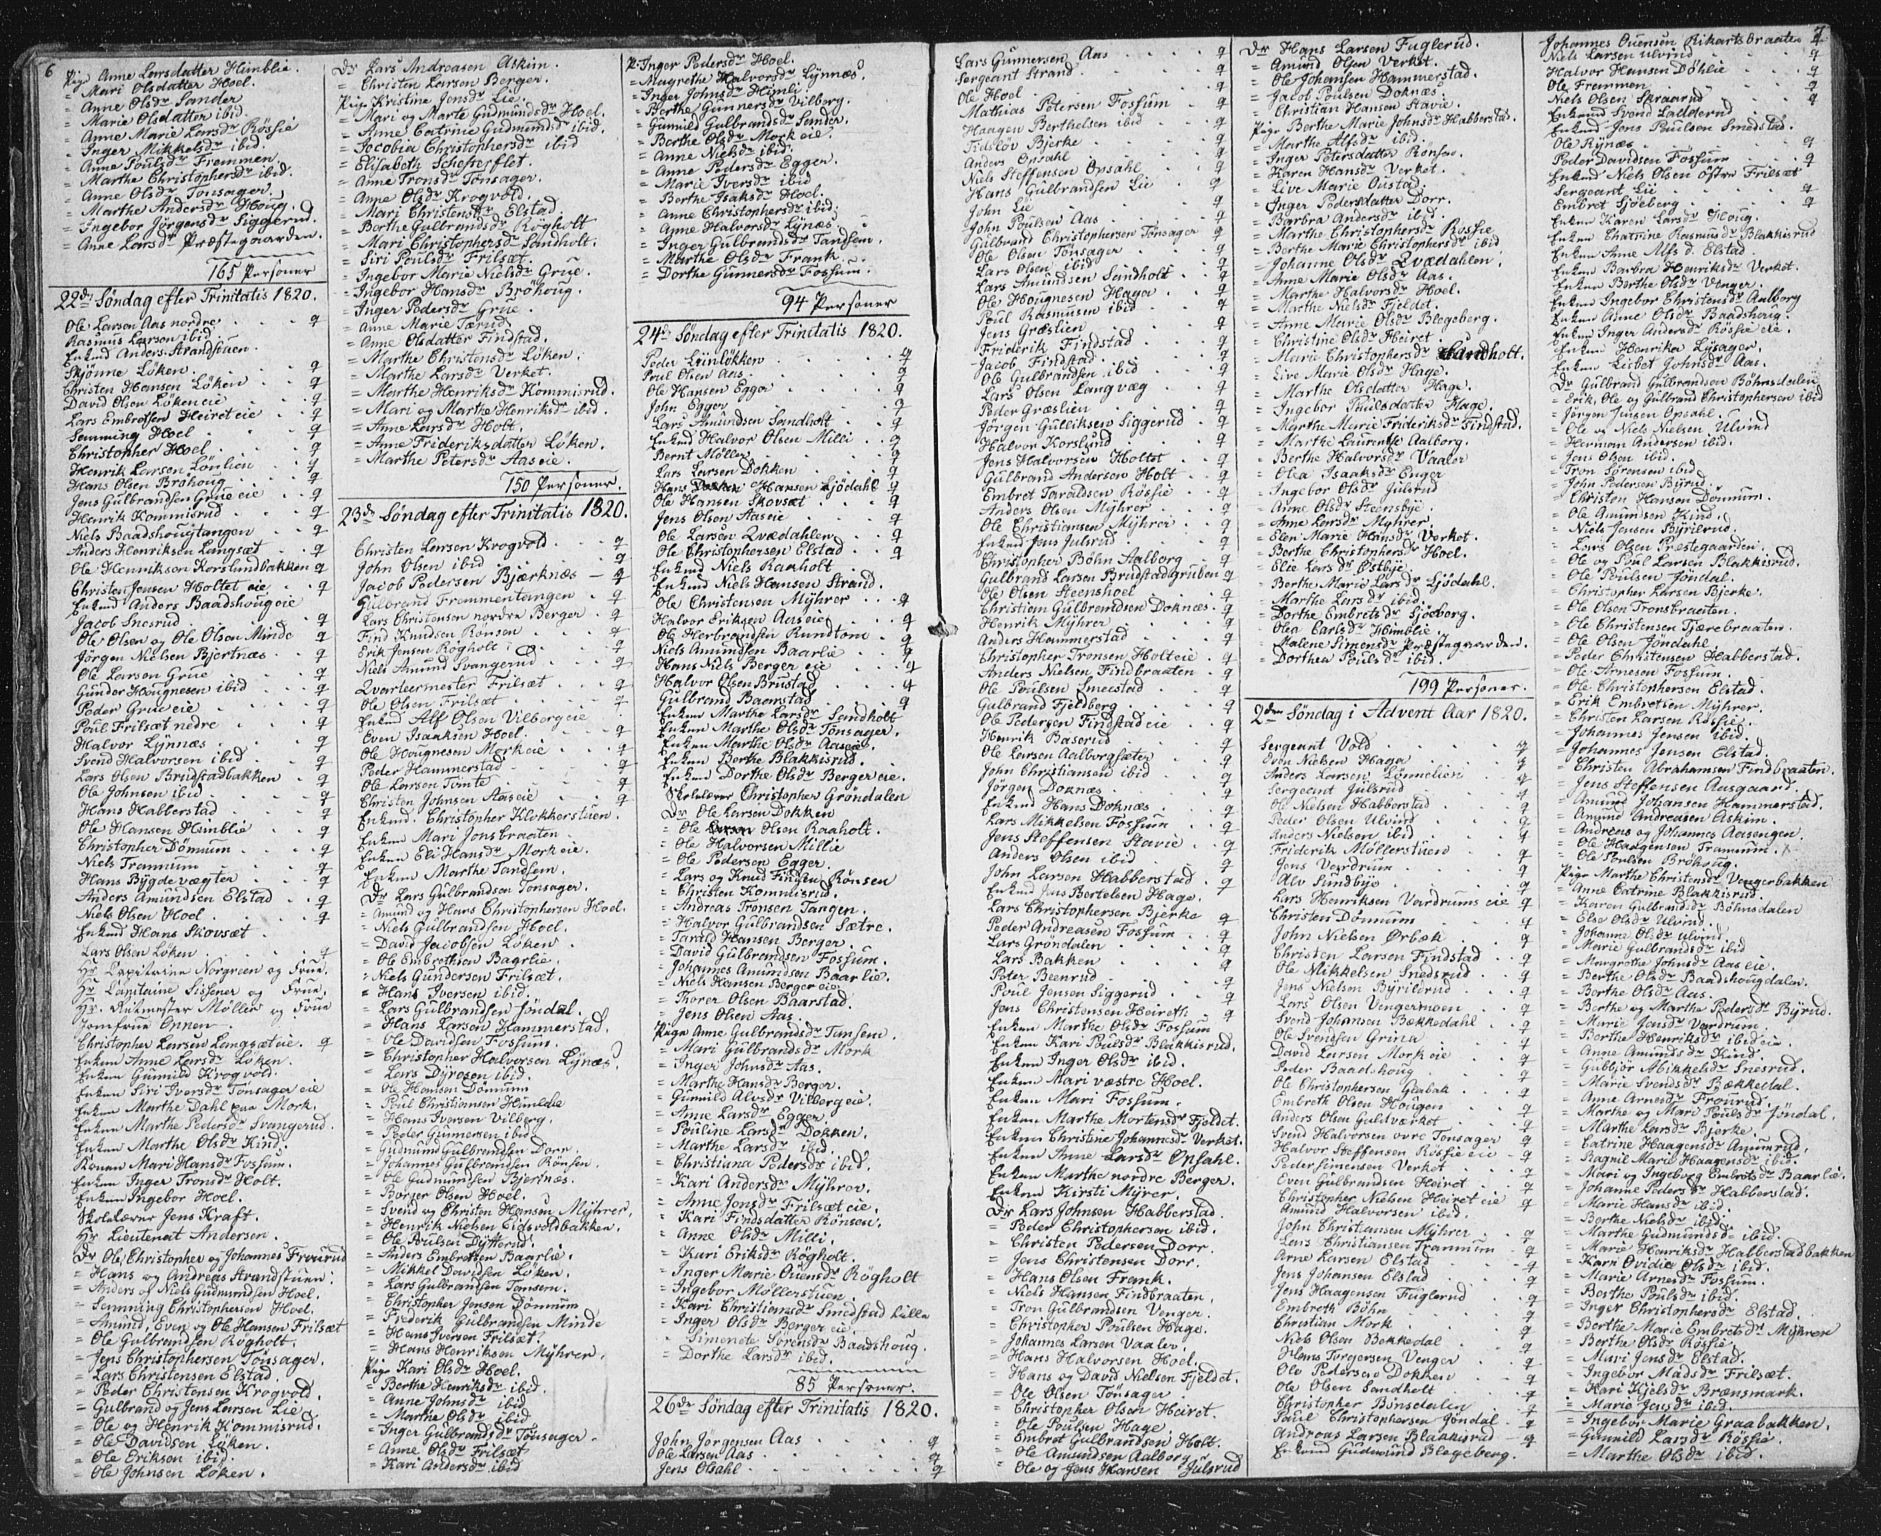 6
Pige Anne Larsdatter Himblie.
= Mari Olsdatter Hoel.
= Anne Olsdr Sander
= Marie Olsdatter ibid.
= Anne Marie Larsdr Rössie
= Inger Mikkelsdr ibid.
= Anne Poulsdr Fremmen.
= Marthe Christophersdr ibid.
= Anne Olsdr Tonsager.
= Marthe Andersdr Houg.
= Ingebor Jörgensdr Siggerud.
= Anne Larsdr Præstegaarden.
165 Personer
22de Söndag efter Trinitatis 1820.
Ole Larsen Aas nordre
Rasmus Larsen ibid
Enkmd Anders Strandstuen.
Skjönne Löken
Christen Hansen Löken
David Olsen Löken eie
Lars Embretsen Heiret eie
Semming Hoel
Christopher Hoel
Henrik Larsen Lönlien
Hans Olsen Brohoug
Jens Gulbrandsen Grue eie
Henrik Kommisrud
Niels Baadshougtangen
Anders Henriksen Langsæt
Ole Henriksen Korslundbakken
Christen Jensen Holtet eie
Enkmd Anders Baadshoug eie
Jacob Inesrud
Ole Olsen og Ole Olsen Minde
Jörgen Nielsen Bjertnæs
Ole Larsen Grue
Gunder Hougnesen ibid
Peder Grue eie
Poul Frilsæt nedre
Halvor Lynnæs
Svend Halvorsen ibid
Lars Olsen Bridstadbakken
Ole Johnsen ibid
Hans Habberstad
Ole Hansen Himblie
Christopher Dönnum
Niels Trammum
Hans Bygdevægter
Anders Amundsen Elstad
Niels Olsen Hoel
Enkmd Hans Skovsæt
Lars Olsen Löken
Hr Capitaine Norgreen og Frue
Hr Capitaine Sissener og Frue,
Hr. Ritmester Möller og Frue
Jomfrue Onnen
Christopher Larsen Langsæt eie.
Enken Anne Larsdr Löken
Enken Gunild Krogvold.
Enken Siri Iversdr Tonsager eie
Enken Marthe Dahl paa Mork.
Enken Marthe Pedersdr Svangerud.
Enken Marthe Olsdr Kind.
Konen Mari Hansdr Fossum.
Enken Inger Tronsdr Holt.
Enken Ingebor Hoel.
Skolelærer Jens Kraft.
Hr Lieutenat Andersen.
Dr Ole, Christopher og Johannes Frourud
= Hans og Andreas Strandstuen:
= Anders og Niels Gudmundsen Hoel.
= Semming Christophersen Hoel.
= Amund, Even og Ole Hansen Frilsæt
= Ole Gulbrandsen Rögholt.
= Jens Christophersen Tonsager.
= Lars Christensen Elstad.
= Peder Christensen Krogvold.
= Gulbrand og Jens Larsen Lie
= Ole og Henrik Kommisrud.
= Ole Davidsen Löken.
= Ole Eriksen ibid.
= Ole Johnsen Löken.
Dr Lars Andreasen Askim.
= Christen Larsen Berger.
Pige Kristine Jensdr Lie.
= Mari og Marte Gudmundsdr Hoel.
= Anne Catrine Gudmundsdr ibid.
= Jocobia Christophersdr ibid
= Elisabeth
= Anne Tronsdr Tonsager.
= Anne Olsdr Krogvold.
= Mari Christensdr Elstad.
= Berthe Gulbrandsdr Rögholt
= Mari Christophersdr Sandholt.
= Siri Poulsdr Frilsæt.
= Ingebor Marie Nielsdr Grue.
= Ingebor Hansdr Bröhoug.
= Inger Pedersdr Grue.
= Anne Marie Tærud
= Anne Olsdatter Findstad.
= Marthe Christensdr Löken.
= Marthe Larsdr Verket.
= Marthe Henriksdr Kommisrud.
= Mari og Marthe Henriksdr ibid.
= Anne Larsdr Holt.
= Anne Frideriksdatter Löken.
= Marthe Petersdr Aas eie.
150 Personer.
23de Söndag efter Trinitatis 1820.
Christen Larsen Krogvold
John Olsen ibid
Jacob Pedersen Bjærknæs
Gulbrand Fremmentangen
Lars Christensen nordre Berger
Find Knudsen Ronsen
Erik Jensen Rögholt
Niels Amund Svangerud
Qvarteermester Frilsæt
Ole Olsen Frilsæt
Enkmd Alf Olsen Vilberg eie
Even Isaakim Hoel
Ole Hougnesen Mork eie
Peder Hammerstad
Ole Larsen Tomte
Christen Johnsen Aas eie
Enkmd Christopher Klokkerstuen.
Enken Mari Jonsbraaten
Enken Eli Hansdr Mork eie.
Enken Marthe Tandsem.
Dr Lars Gulbrandsen Tonsager.
= Amund og Hans Christophersen Hoel.
= Niels Gulbrandsen Hoel.
= David Jacobsen Löken.
= Ole Embretsen Bagrlie.
= Niels Gundersen Frilsæt.
= Hans Iversen ibid.
= Lars Gulbrandsen Jöndal.
= Hans Larsen Hammerstad.
= Ole Davidsen Fossum.
= Christopher Halvorsen Lynæs.
= Lars Dyresen ibid.
= Ole Hansen Dönnum
= Poul Christiansen Himblie
= Hans Iversen Vilberg.
= Peder Gunnersen ibid
= Gudmund Gulbrandsen Dorr.
= Johannes Gulbrandsen Rönsen.
= Ole Gudmundsen Bjertnæs.
= Börger Olsen Hoel.
= Svend og Christen Hansen Myhrer.
= Henrik Nielsen Eidsvoldsbakken.
= Ole Poulsen Dytterud.
= Anders Embretsen Baarlie.
= Mikkel Davidsen Löken.
= Lars Gulbrandsen Tansem.
= Christopher Jensen Dönnum
= Frederik Gulbrandsen Minde
= Hans Iversen Frilsæt
= Hans Henriksen Myhrer.
Pige Kari Olsdr Hoel.
= Berthe Henriksdr ibid.
= Anne Johnsdr ibid
= Marthe Olsdr ibid
= Inger Gulbrandsdr Tonsager.
= Anne Olsdr Frilsæt
= Kari Andersdr ibid
P. Inger Pedersdr Hoel.
= Magrethe Halvorsdr Lynnæs.
= Inger Johnsdr Himli
= Berthe Gunnersdr Vilberg.
= Gunnild Gulbrandsdr Sander.
= Berthe Olsdr Mork eie.
= Anne Nielsdr ibid.
= Anne Pedersdr Egger.
= Marie Iversdr ibid
= Berthe Isaksdr Hoel.
= Anne Christophersdr ibid.
= Anne Halvorsdr Lynæs.
= Inger Gulbrandsdr Tandsem.
= Marthe Olsdr Frank.
= Dorthe Gunnersdr Fossum.
94 Personer
24de Söndag efter Trinitatis 1820.
Peder Leinlökken
Poul Olsen Aas
Ole Hansen Egger
John Egger
Lars Amundsen Sandholt
Enkmd Halvor Olsen Milli
Bernt Möller
Lars Larsen Dokken
Hans Hansen Ljödahl
Ole Hansen Skovsæt
Jens Olsen Aas eie
Ole Larsen Qvædahlen
Ole Christophersen Elstad
Enkmd Niels Raaholt
Enkmd Niels Hansen Strand.
Ole Christensen Myhrer
Halvor Eriksen Aas eie
Ole Herbrandsen Rundtom
Niels Amundsen Baarlie
Hans Niels Berger eie
Halvor Olsen Brustad
Gulbrand Baenstad
Enken Marthe Larsdr Sandholt
Enken Marthe Olsdr Tonsager.
Enken Marthe Olsdr Aas eie.
Enken Berthe Blakkisrud.
Enken Dorthe Olsdr Berger eie.
Skolelærer Christopher Gröndalen
Dr Ole Larsen Dokken
= Ole Olsen Raaholt.
= Ole Halvorsen Millie
= Ole Pedersen Egger.
= Lars og Knud Findsen Rönsen
= Christen Kommisrud.
= Andreas Tronsen Tangen.
= Halvor Gulbrandsen Sætre.
= Tarald Hansen Berger.
= David Gulbrandsen Fossum.
= Johannes Amundsen Baarlie.
= Niels Hansen Berger eie
= Thorer Olsen Baarstad.
= Jens Olsen Aas.
Pige Anne Gulbrandsdr Tansem.
= Mari Gulbrandsdr Mork
= Inger Johnsdr Aas.
= Marthe Hansdr Berger.
= Gunnild Alvsdr Vilberg eie.
= Anne Larsdr Egger
= Pouline Larsdr Dokken.
= Marthe Larsdr ibid
= Christiana Pedersdr ibid.
= Kari Andersdr Myhrer.
= Anne Jonsdr Frilsæt eie,
= Kari Findsdatter Rönsen.
= Anne Olsdr Milli.
= Kari Eriksdr Rögholt.
= Inger Marie Ouensdr Rögholt
= Ingebor Möllerstuen.
= Kari Christiansdr Smedstad lille
= Inger Olsdr Berger eie
= Simenete Sörensdr Baadshoug.
= Dorthe Larsdr ibid.
85 Personer.
26de Söndag efter Trinitatis 1820.
John Jörgensen Aas
Ole Larsen Aas
Jens Olsahl
Lars Gunnersen Aas
Sergeant Strand
Ole Hoel
Mathias Petersen Fossum
Haagen Berthelsen ibid
Tidslöv Bjerke
Anders Opsahl
Niels Steffensen Opsahl
Hans Gulbrandsen Lie
John Lie
John Poulsen Aas
Gulbrand Christophersen Tonsager
Ole Olsen Tonsager
Lars Olsen ibid
Lars Amundsen Sandholt
Ole Hougnesen Haga
Poul Rasmusen ibid
Jens Græslien
Friderik Findstad
Jacob Findstad
Ole Gulbrandsen ibid
Lars Olsen Langvæg
Peder Græslien
Jörgen Gulliksen Siggerud
Halvor Korslund
Jens Halvorsen Holtet
Gulbrand Andersen Holt
Embret Taraldsen Rössie
Anders Olsen Myhrer
Ole Christiansen Myhrer
Enkmd Jens Julsrud
Christopher Böhn Aalborg
Gulbrand Larsen Brudstadgruben
Ole Olsen Steenshoel
Christian Gulbrandsen Doknæs
Henrik Myhrer
Anders Hammerstad
Christopher Tronsen Holt eie
Anders Nielsen Findbraaten
Ole Poulsen Smestad
Gulbrand Fjeldberg
Ole Pedersen Findstad eie
Henrik Baserud
Ole Larsen Aalborgsæter
John Christiansen ibid
Jörgen Doknæs
Enkmd Hans Doknæs
Lars Mikkelsen Fossum
Jens Steffensen Stavie
Anders Olsen ibid
John Larsen Habberstad
Enkmd Jens Bertelsen Hage.
Lars Christophersen Bjerke
Peder Andreasen Fossum
Lars Gröndalen
Lars Bakken
Peter Beenrud
Poul Jensen Siggerud
Jens Christensen Heireth
Enken Marthe Olsdr Fossum
Enken Kari Poulsdr Blakkisrud.
Enken Inger Olsdr ibid.
Enken Mari væstre Hoel.
Enken Mari Fossum.
Enken Marthe Mortensdr Fjeldet.
Enken Christine Johannesdr Verket.
Enken Anne Larsdr Opsahl.
Enken Marthe nordre Berger.
Enken Kirsti Myrer.
Dr Lars Johnsen Habberstad.
= Peder Christophersen ibid.
= Christen Pedersen Dorr.
= Jens Christensen Dorr.
= Hans Olsen Frank.
= Niels Hansen Findbraaten.
= Tron Gulbrandsen Venger.
= Christopher Poulsen Hage.
= Johannes Larsen Vaaler.
= Hans Halvorsen Hoel.
= Hans og David Nielsen Fjeldet.
= Ole Olsen Tonsager
= Christopher Olsen Heiret.
= Ole Poulsen Hage
= Embret Gulbrandsen Holt.
= Ole Amundsen Aalborg
= Ole og Jens Hansen Julsrud
Dr Hans Larsen Fuglerud.
= Amund Olsen Verket.
= Ole Johansen Hammerstad.
= Jacob Poulsen Doknæs.
= Christian Hansen Stavie.
Pige Berthe Marie Johnsdr Habberstad.
= Marthe Alfsdr ibid.
= Inger Petersdatter Rönsen
= Karen Hansdr Verket.
= Live Marie Oustad.
= Inger Pedersdatter Dorr.
= Barbra Andersdr ibid.
= Marthe Christophersdr Rössie
= Berthe Marie Christophersdr ibid
= Johanne Olsdr Qvædahlen.
= Anne Marie Olsdr Aas.
= Marthe Halvorsdr Hoel.
= Marthe Nielsdr Fjeldet
= Anne Marie Olsdr Blegeberg.
= Christine Olsdr Heiret.
= Marie Christophersdr Sandholt.
= Live Marie Olsdr Hage.
= Marthe Olsdatter Hage.
= Ingebor Poulsdatter Hage.
= Marthe Marie Frideriksdr Findstad.
= Marthe Laurentse Aalborg.
= Berthe Halvorsdr Vaaler
= Olea Isaaksdr Enger
= Ingebor Olsdr Julsrud
= Anne Olsdr Steensbye
= Anne Larsdr Myhrer
= Elen Marie Hansdr Verket.
= Berthe Christophersdr Hoel.
= Elie Larsdr Østbye
= Berthe Marie Larsdr Ljödahl.
= Marthe Larsdr ibid.
= Dorthe Embretsdr Sjöeborg.
= Olea Carlsdr Himblie.
= Malene Simensdr Præstegaarden.
= Dorthea Poulsdr ibid.
199 Personer.
2den Söndag i Advent Aar 1820.
Sergeant Vold
Even Nielsen Haga
Anders Larsen Lönnelien
Sergeant Julsrud
Ole Nielsen Habberstad
Peder Olsen Ulvind
Anders Nielsen ibid
Friderik Möllerstuen
Jens Vardrum
Alv Sundbye
Lars Henriksen Vardrums eie
Christen Dömmum
John Nielsen Ørbæk
Christen Larsen Findstad
Ole Mikkelsen Snedsrud
Jens Nielsen Byrildrud
Lars Olsen Vengermoen
Svend Johansen Bækkedahl
Ole Svendsen Grina
David Larsen Mork eie
Peder Baadshoug
Ole Christophersen Glabak
Embreth Olsen Hougen
Anders Olsen Guldværket
Svend Halvorsen ovre Tonsager
Halvor Steffensen Rössie eie
Peder Simensen Verket
Even Gulbrandsen Heiret
Christopher Nielsen Heiret eie
Amund Halvorsen ibid.
John Christensen Myhrer
Lars Christiansen Trammum
Arne Larsen Elstad
Jens Johansen Elstad
Jens Haagensen Fuglerud
Embreth Böhn
Christian Mork
Niels Olsen Bekkedal
Hans Torgersen Venger
Ole Pedersen Dokken
Ole Olsen Sandholt
Christopher Bönsdalen
Paul Christophersen Jöndal
Andreas Larsen Blakkisrud
Enkmd Gudmund Blegeberg.
7
Johannes Ouensen Rikartsbraaten
Niels Larsen Ulvind
Halvor Hansen Döhlie
Ole Fremmen
Niels Olsen Skraarud
Enkmd Svend Ladderud
Enkmd Jens Poulsen Smedstad.
Ole Rynæs
Peder Davidsen Fossum
Enkmd Niels Olsen östre Frilsæt
Sergeant Lie
Embret Sjöeberg
Enken Karen Larsdr Houg.
Enken Chatrine Rasmusdr Blakkisrud
Enken Anne Alfsd. Elstad.
Enken Barbra Henriksdr Verket.
Enken Berthe Olsdr Venger.
Enken Ingebor Christensdr Aalborg
Enken Anne Olsdr Baadshoug.
Enken Inger Andersdr Rössie eie.
Enken Henrike Lysager.
Enken Lisbet Johnsdr Aas.
Dr Gulbrand Gulbrandsen Böhnsdalen
= Erik, Ole og Gulbrand Christophersen ibid
= Jörgen Jensen Opsahl.
= Ole og Niels Nielsen Ulvind
= Herman Andersen ibid.
= Jens Olsen ibid.
= Tron Sörensen ibid
= John Pedersen Byrud.
= Christen Hansen Dönnum.
= Ole Amundsen Kind.
= Niels Jensen Byrilrud.
= Lars Olsen Præstegaarden.
= Ole og Poul Larsen Blakkisrud.
= Ole Poulsen Jöndal.
= Christopher Larsen Bjerke.
= Ole Olsen Tronsbraaten.
= Ole Christensen Tjærebraaten.
= Ole Olsen Jöndahl.
= Peder Christensen Habberstad.
= Ole Arnesen Fossum.
= Ole Christophersen Elstad.
= Erik Embretsen Myhrer.
= Christen Larsen Rössie.
= Johannes Jensen ibid.
= Johannes Jensen Elstad.
= Christen Abrahamsen Findbraaten.
= Jens Steffensen Aasgaard.
= Amund Johansen Hammerstad.
= Amund Andreasen Askim.
= Andreas og Johannes Aasengen.
= Ole Haagensen Trammum.
= Ole Poulsen Bröhoug.
Pige Marthe Christensdr Vengerbakken
= Anne Catrine Blakkisrud.
= Karen Gulbrandsdr Böhnsdalen
= Else Olsdr Ulvind.
= Johanne Olsdr Ulvind.
= Marie Gulbrandsdr ibid
= Margrethe Johnsdr Aas eie.
= Berthe Olsdr Baadshougdalen.
= Berthe Olsdr Aas.
= Berthe og Marthe Pedersdr Byrud.
= Marie Jensdr Vardrum.
= Berthe Henriksdr ibid eie.
= Anne Amundsdr Kind.
= Gubbjör Mikkelsdr Snesrud.
= Marie Svendsdr Bækkedal.
= Anne Arnesdr Frourud.
= Marthe og Mari Poulsdr Jöndal.
= Marthe Larsdr Bjerke.
= Catrine Haagensdr Amunrud.
= Ragnil Marie Haagensdr ibid.
= Mari og Ingeborg Embretsdr Baarlie.
= Johanne Pedersdr Habberstad.
= Marie Hansdr ibid.
= Berthe Nielsdr ibid.
= Marthe Gudmundsdr ibid.
= Marie Henriksdr Habberstadbakken
= Karn Ovidia Olsdr ibid.
= Marie Arnesdr Fossum.
= Berthe Poulsdr ibid.
= Inger Christophersdr Elstad.
= Berthe Marie Embretsdr Myhrer
= Berthe Olsdr Rössie.
= Mari Jensdr Elstad.
= Ingebor Madsdr Frilsæt.
= Kari Kjelsdr Brænsmark.
= Marie Jensdr ibid.
= Ingebor Marie Graabakken.
= Gunnild Larsdr Rössie.
= Marthe Olsdr ibid.